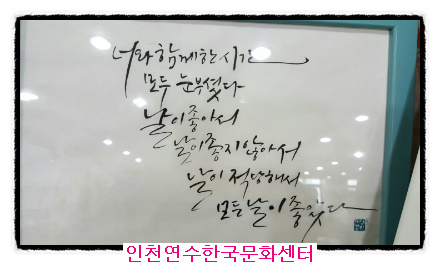 너와 함께한 시간
모두 눈부셨다
날이 좋아서
날이 좋지 않아서
날이 적당해서
모든 날이 좋았다
인천연수한국문화센터